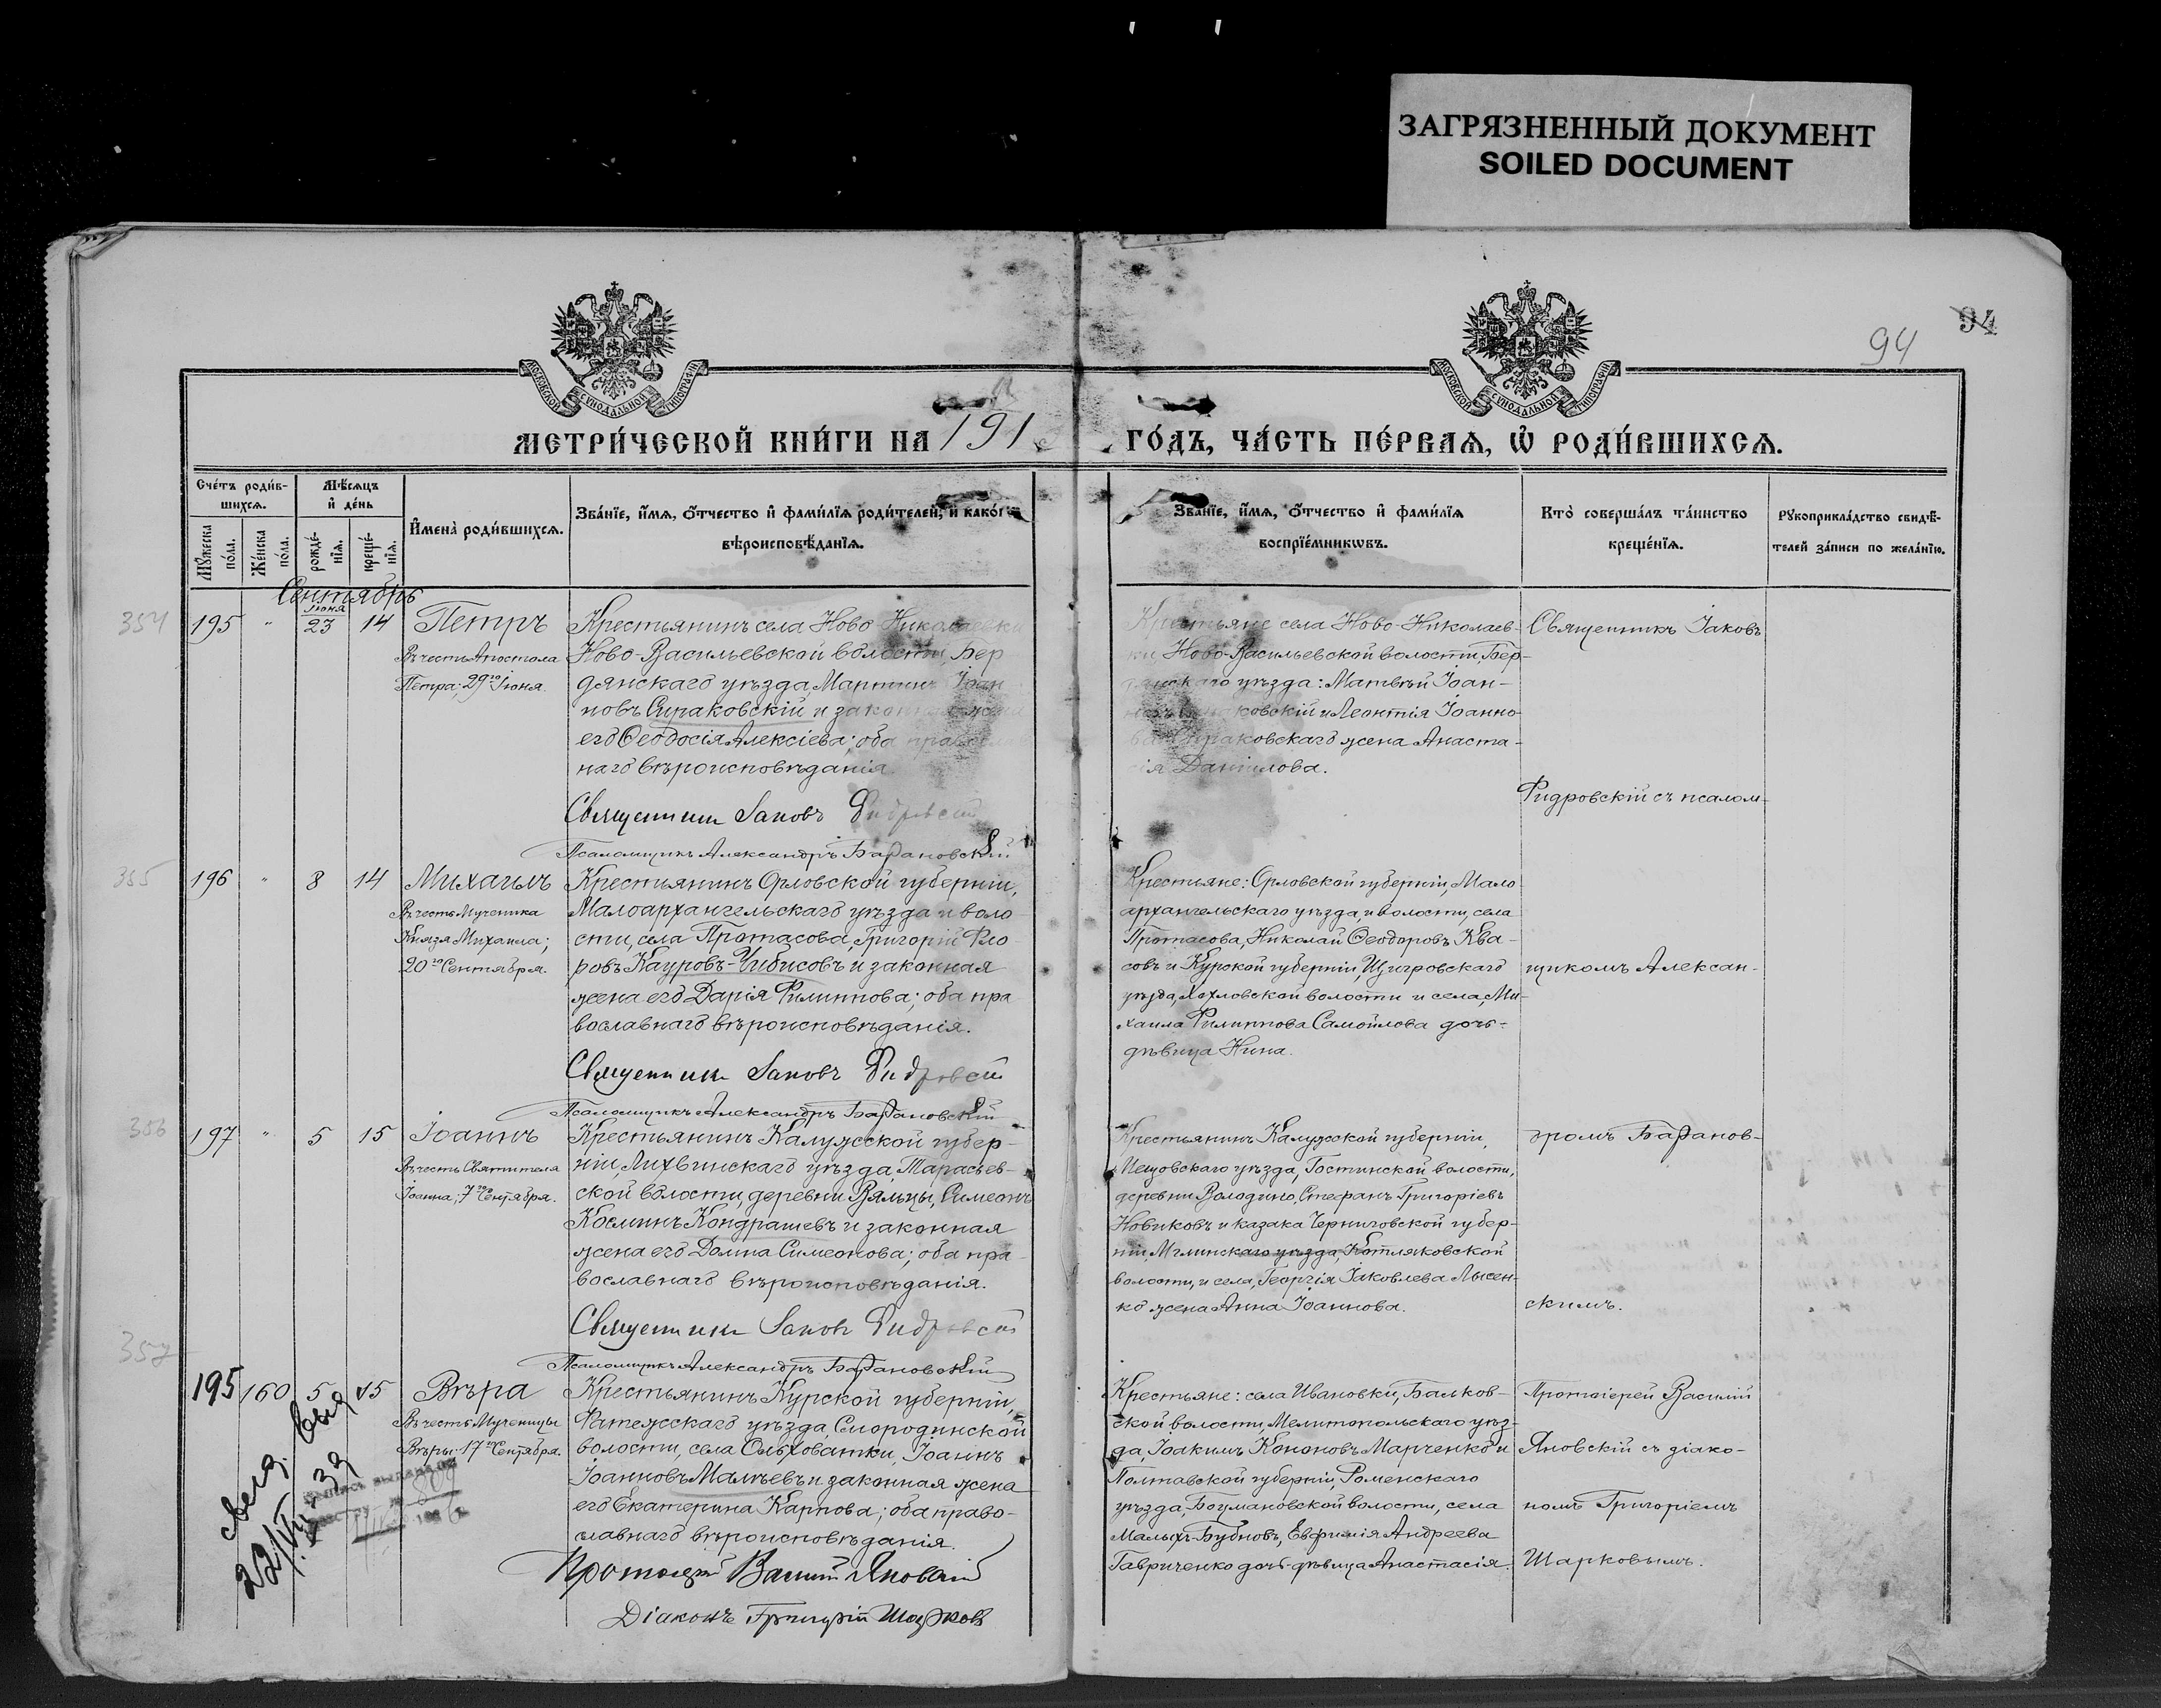 ЗАГРЯЗНЕННЫЙ ДОКУМЕНТ
SOILED DOCUMENT
94
94
МОСКОВСКОЙ СѴНОДАЛЬНОЙ ТИПОГРАФІИ
МОСКОВСКОЙ СѴНОДАЛЬНОЙ ТИПОГРАФІИ
МЕТРИ́ЧЕСКОЙ КНИ́ГИ НА 191
ГО́ДЪ, ЧА́СТЬ ПЕ́РВАѦ, Ѽ РОДИ́ВШИХСѦ.
Сче́тъ роди́в-
шихсѧ.
Мꙋжеска по́ла.
Же́нска по́ла.
Мѣ́сѧцъ
и҆ де́нь
рожде́-
нїѧ.
креще́-
нїѧ.
И҆мена̀ роди́вшихсѧ.
Зва́нїе, и҆́мѧ, ѻ҆́тчество и҆ фами́лїѧ роди́телей, и҆ како́
вѣроисповѣ́данїѧ.
Зва́нїе, и҆́мѧ, ѻ҆́тчество и҆ фами́лїѧ
воспрїе́мникѡвъ.
Кто̀ соверша́лъ та́инство
креще́нїѧ.
Рꙋкоприкла́дство свидѣ́-
телей за́писи по жела́нїю.
Сентябрь
354
195 " Іюня 23 14
Петръ
Въ честь Апостола
Петра; 29го Іюня.
Крестьянинъ села Ново Николаевки
Ново-Васильевской волости, Бер
дянскаго уѣзда, Мартинъ Іоан
новъ Сираковскій и законная жена
его Ѳеодосія Алексіева; оба православ
наго вѣроисповѣданія
Священникъ Іаковъ Фидровскій
Псаломщикъ Александръ Барановскій
Крестьяне села Ново-Николаев-
ки, Ново-Васильевской волости, Бер-
дянскаго уѣзда: Матвѣй Іоан-
новъ Сираковскій и Леонтія Іоанно-
ва Сираковскаго жена Анаста-
сія Даніилова.
Священникъ Іаковъ
Фидровскій съ псалом-
355
196 " 8 14
Михаилъ
Въ честь Мученика
Князя Михаила;
20го Сентября.
Крестьянинъ Орловской губерніи,
Малоархангельскаго уѣзда и воло
сти, села Протасова, Григорій Фло
ровъ Кауровъ-Чибисовъ и законная
жена его Дарія Филиппова; оба пра
вославнаго вѣроисповѣданія.
Священникъ Іаковъ Фидровскій
Псаломщикъ Александръ Барановскій
Крестьяне: Орловской губерніи, Мало
архангельскаго уѣзда, и волости, села
Протасова, Николай Ѳеодоровъ Ква-
совъ и Курской губерніи, Щигровскаго
уѣзда, Хохловской волости и села, Ми-
хаила Филиппова Самойлова дочь-
дѣвица Нина.
щикомъ Алексан-
356
197 " 5 15
Іоаннъ
Въ честь Святителя
Іоанна; 7го Сентября.
Крестьянинъ Калужской губер-
ніи, Лихвинскаго уѣзда, Тарасьев-
ской волости, деревни Вяльцы, Симеонъ
Косминъ Кондрашевъ и законная
жена его Домна Симеонова; оба пра
вославнаго вѣроисповѣданія.
Священникъ Іаковъ Фидровскій
Псаломщикъ Александръ Барановскій
Крестьянинъ Калужской губерніи,
Мещовскаго уѣзда, Гостинской волости,
деревни Володино, Стефанъ Григоріевъ
Новиковъ и казака Черниговской губер-
ніи, Мглинскаго уѣзда, Котляковской
волости, и села, Георгія Іаковлева Лысен-
ко жена Анна Іоаннова.
дромъ Баранов-
скимъ.
357
195 160 5 15
Вѣра
Въ честь Мученицы
Вѣры. 17го Сентября.
Крестьянинъ Курской губерніи,
Фатежскаго уѣзда, Смородинской
волости, села Ольховатки, Іоаннъ
Іоанновъ Малѣевъ и законная жена
его Екатерина Карпова; оба право-
славнаго вѣроисповѣданія.
Протоіерей Василій Яновскій
Діаконъ Григорій Шарковъ
Крестьяне: села Ивановки, Балков-
ской волости, Мелитопольскаго уѣз-
да, Іоакимъ Кононовъ Марченко и
Полтавской губерніи, Роменскаго
уѣзда, Боцмановской волости, села
Малыхъ-Бубновъ, Евфимія Андреева
Гавриченко дочь-дѣвица Анастасія.
Протоіерей Василій
Яновскій съ діако-
номъ Григоріемъ
Шарковымъ.